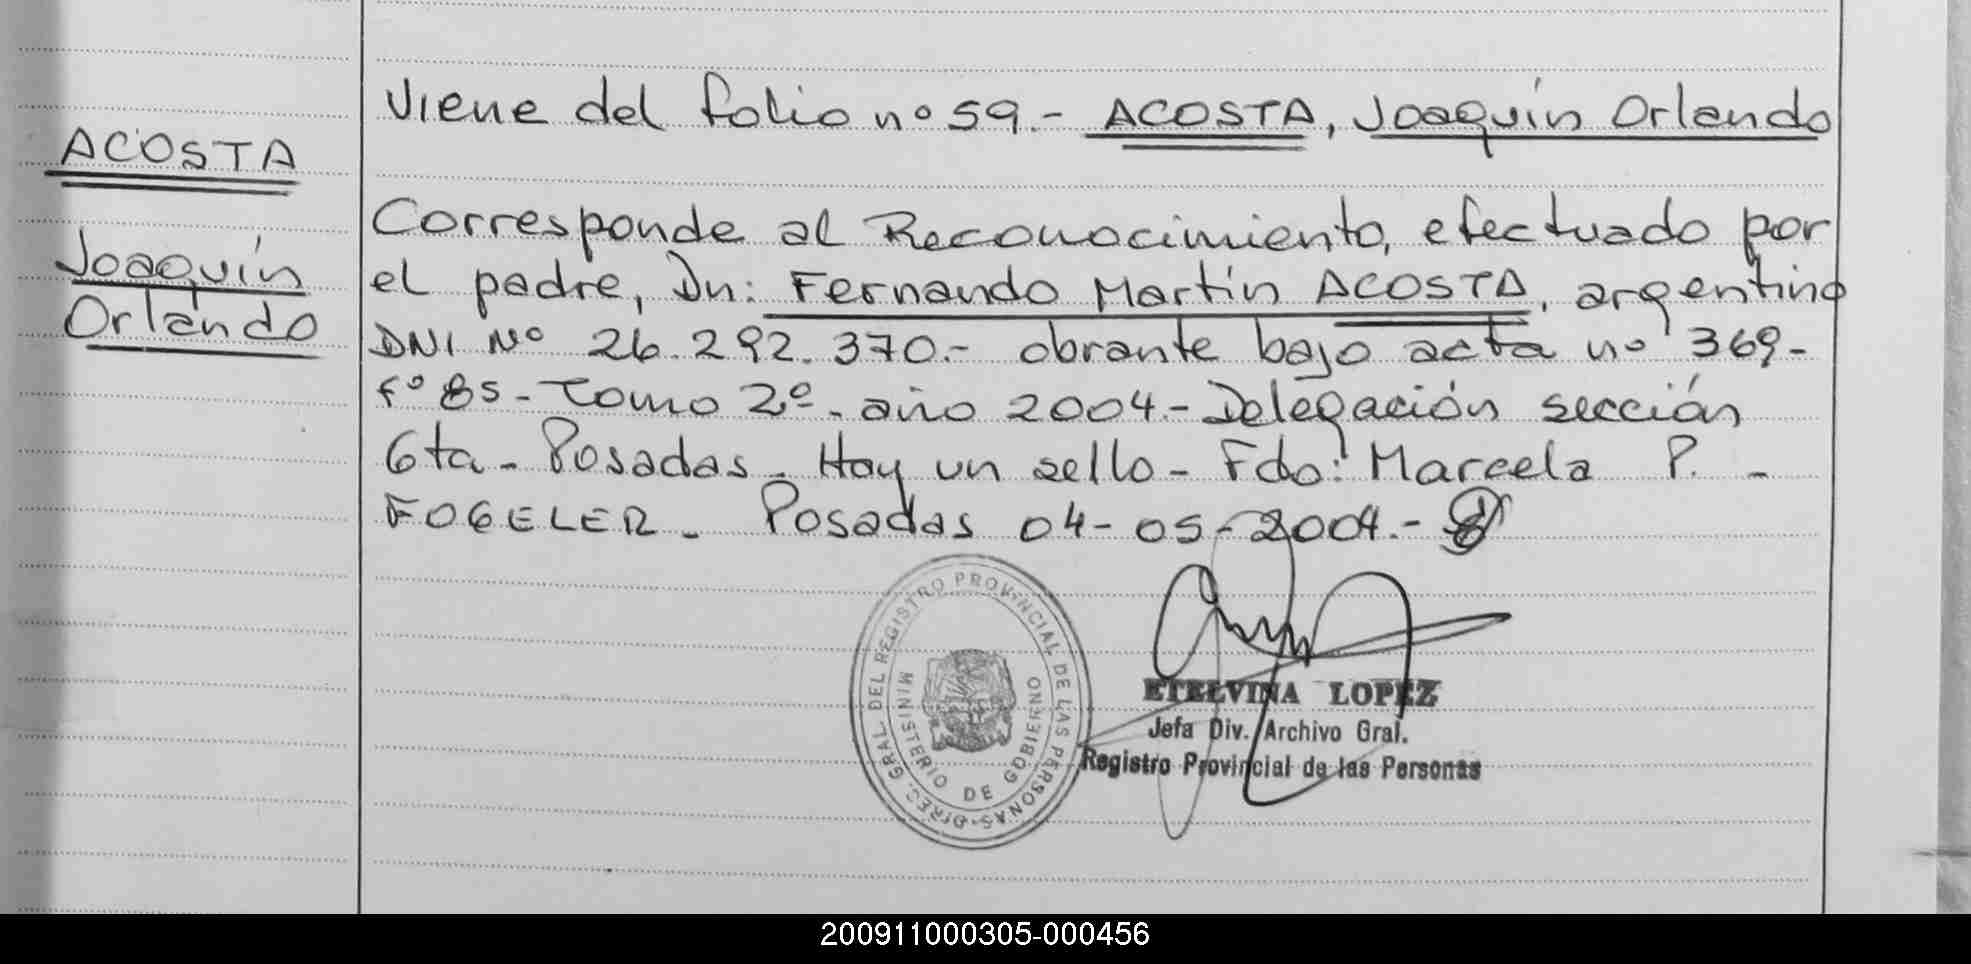 ACOSTA
Joaquín
Orlando
Viene del folio nº 59.- ACOSTA, Joaquín Orlando
Corresponde al Reconocimiento, efectuado por
el padre, Dn: Fernando Martín ACOSTA, argentino
DNI Nº 26.292.370.- obrante bajo acta nº 369-
fº 85 - Tomo 2º - año 2004.- Delegación sección
6ta - Posadas - Hay un sello - Fdo: Marcela P. -
FOGELER - Posadas 04-05-2004.-
DIREC. GRAL. DEL REGISTRO PROVINCIAL DE LAS PERSONAS-
MINISTERIO DE GOBIERNO
ETELVINA LOPEZ
Jefa Div. Archivo Gral.
Registro Provincial de las Personas
200911000305-000456